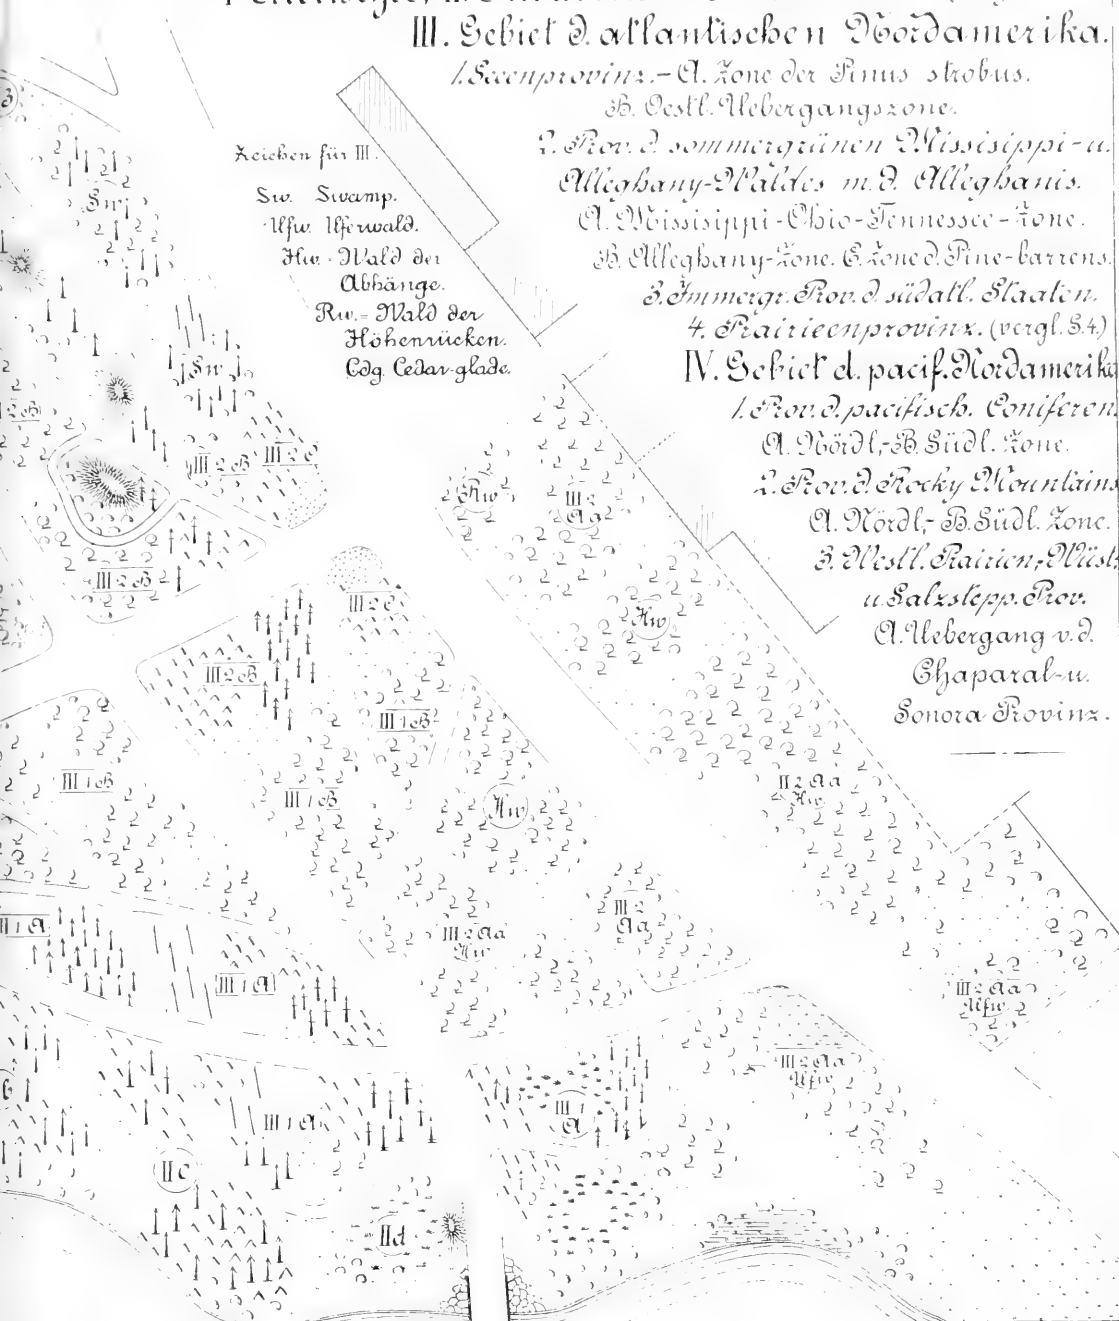 III. Gebiet d. atlantischen Nordamerika.
1. Seeenprovinz. – A. Zone der Pinus strobus.
B. Oestl. Uebergangszone.
2. Prov. d. sommergrünen Missisippi- u.
Alleghany-Waldes m. d. Alleghanis.
A. Missisippi-Ohio-Tennessee-Zone.
B. Alleghany-Zone. C. Zone d. Pine-barrens.
3. Immergr. Prov. d. südatl. Staaten.
4. Prairieenprovinz. (vergl. S. 4.)
IV. Gebiet d. pacif. Nordamerika
1. Prov. d. pacifisch. Coniferen.
A. Nördl.- B. Südl. Zone.
2. Prov. d. Rocky Mountains
A. Nördl.- B. Südl. Zone.
3. Westl. Prairien-, Wüst.
u. Salzstepp. Prov.
A. Uebergang v. d.
Chaparal- u.
Sonora Provinz.
Zeichen für III.
Sw. Swamp.
Ufw. Uferwald.
Hw. - Wald der
Abhänge.
Rw. = Wald der
Höhenrücken.
Cdg. Cedar-glade.
3
Sw
Sw
2 B
III 2 B
III 2 C
Rw
III 2
Aa
III 2 B
III 2 C
Hw
III 2 B
III 1 B
III 1 B
III 1 B
Hw
III 2 Aa
Hw
III 1 A
III 2 Aa
Hw
III 2
Aa
III 1 A
III 2 Aa
Ufw
III 2 Aa
Ufw
b
III 1 A
III 1
A
II c
II d